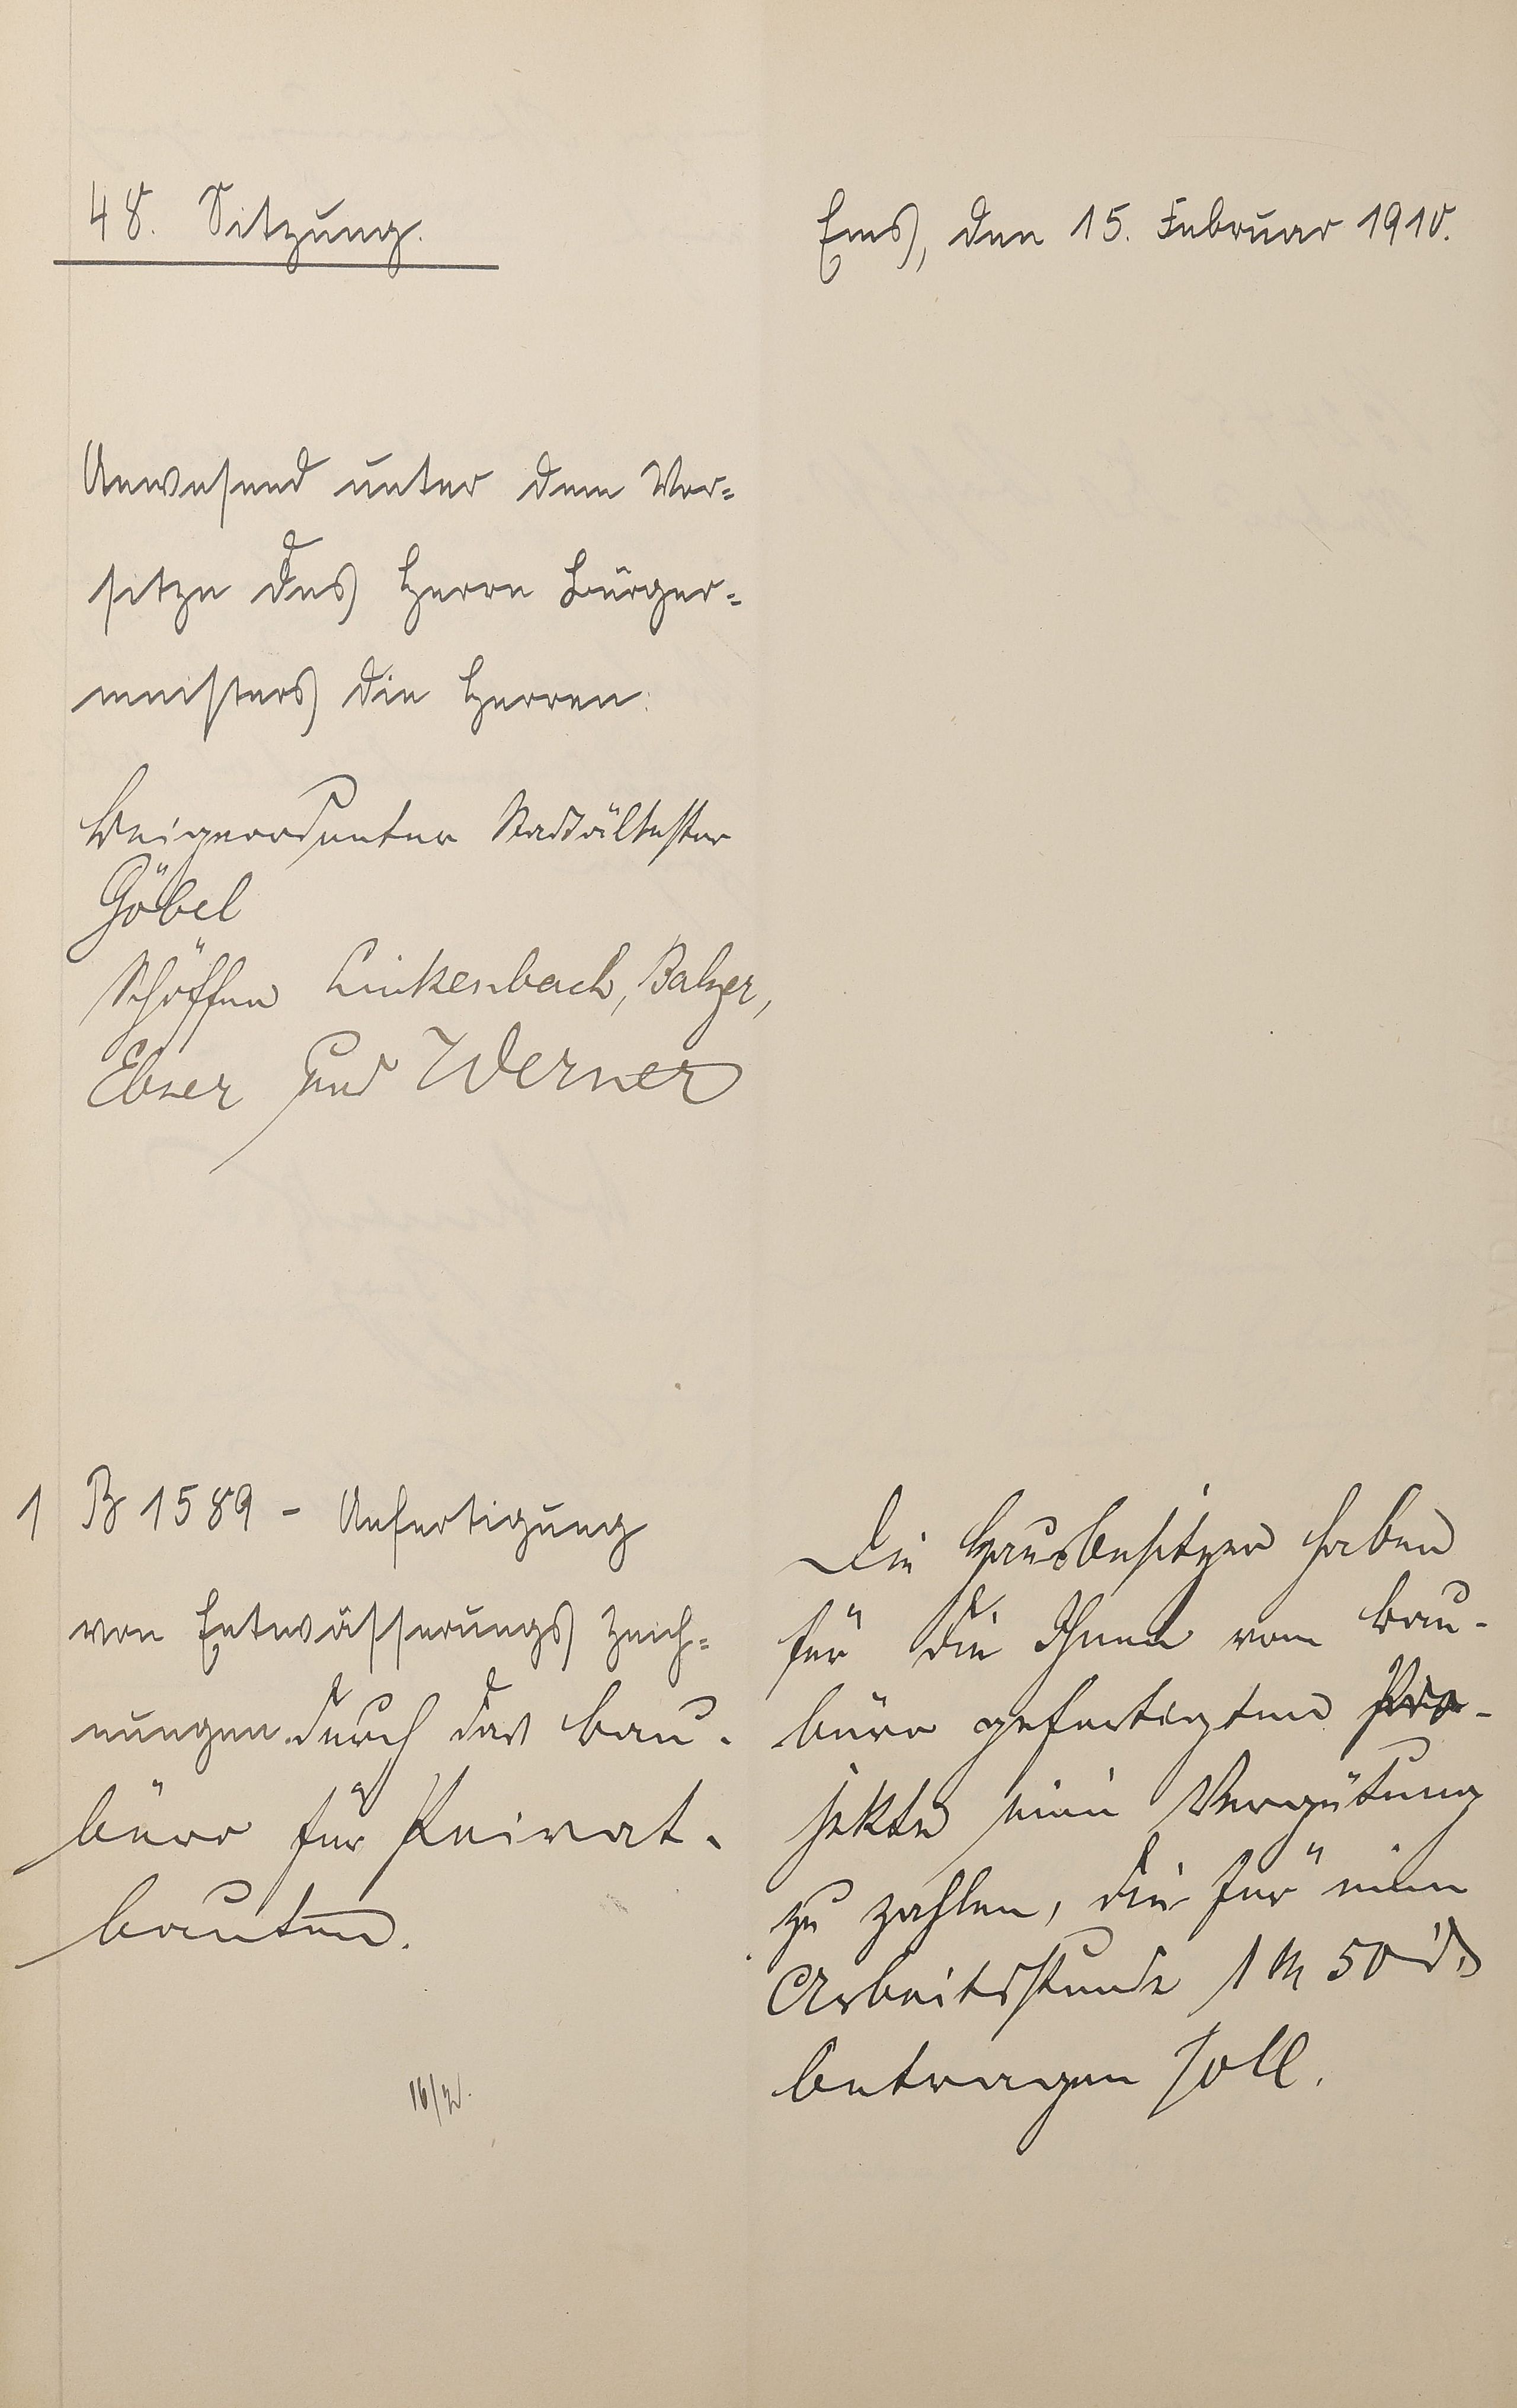 48. Sitzung.
Ems, den 15. Februar 1910.
Anwesend unter dem Vor=
sitze des Herrn Bürger=
meisters die Herren:
Beigeordneter Stadtältester
Göbel
Schöffen Linkenbach, Balzer,
Ebner und Werner
1 B 1589 - Anfertigung
von Entwässerungs Zeich=
nungen durch das Bau-
büro für Privat-
bauten.
16/2.
Die Hausbesitzer haben
für die Ihnen vom Bau-
büro gefertigten Pro-
jekte eine Vergütung
zu zahlen, die für eine
Arbeitsstunde 1 M 50 ₰
betragen soll.